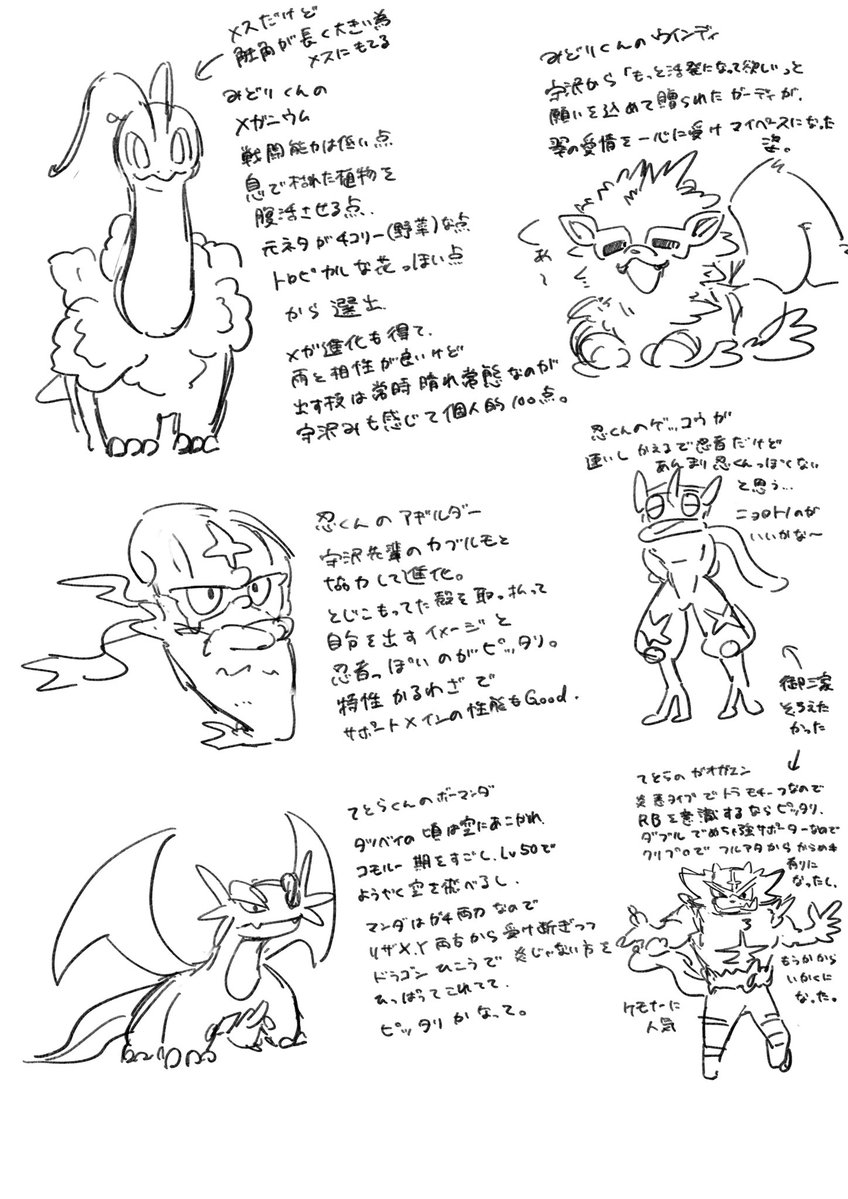 メスだけど
触角が長く大きい為
メスにもてる
みどりくんの
メガニウム
戦闘能力は低い点
息で枯れた植物を
復活させる点、
元ネタがチコリー(野菜)な点
トロピカルな花っぽい点
から選出
メガ進化も得て、
雨と相性が良いけど
出す枝は常時晴れ常態なのが
宇沢みも感じて個人的100点。
みどりくんのウインディ
宇沢から「もっと活発になって欲しい」と
願いを込めて贈られたガーディが、
翠の愛情を一心に受けマイペースになった
姿。
あ〜
忍くんのアギルダー
宇沢先輩のカブルモと
協力して進化。
とじこもってた殻を取っ払って
自分を出すイメージと
忍者っぽいのがピッタリ。
特性かるわざで
サポートメインの性能もGood.
忍くんのゲッコウガ
速いしかえるで忍者だけど
あんまり忍くんっぽくない
と思う…
ニョロトノのが
いいかな〜
御三家
そろえた
かった
てとらくんのボーマンダ
タツベイの頃は空にあこがれ、
コモルー期をすごし、Lv50で
ようやく空を飛べるし、
マンダはガチ両刀なので
リザX,Y両方から受け断ぎつつ
ドラゴンひこうで炎じゃない方を
ひっぱってこれてて、
ピッタリかなって。
てとらのガオガエン
炎悪タイプでトラモチーフなので
RBを意識するならピッタリ、
ダブルでめちゃ強サポーターなので
クリプロでフルアタからからめ手
有りに
なったし、
もうかから
いかくに
なった。
ケモナーに
人気